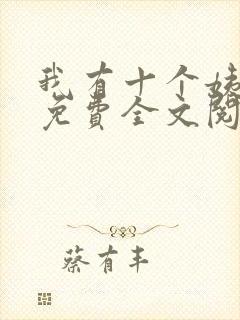 我有十个姨
免费全文阅
蔡有丰